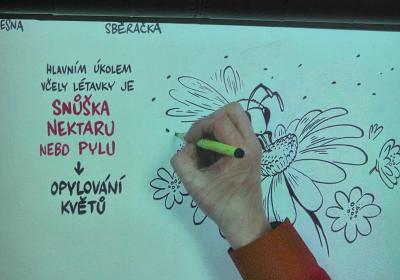 SBĚRAČKA
HLAVNÍM ÚKOLEM
VČELY LÉTAVKY JE
SNŮŠKA
NEKTARU
NEBO PYLU
OPYLOVÁNÍ
KVĚTŮ